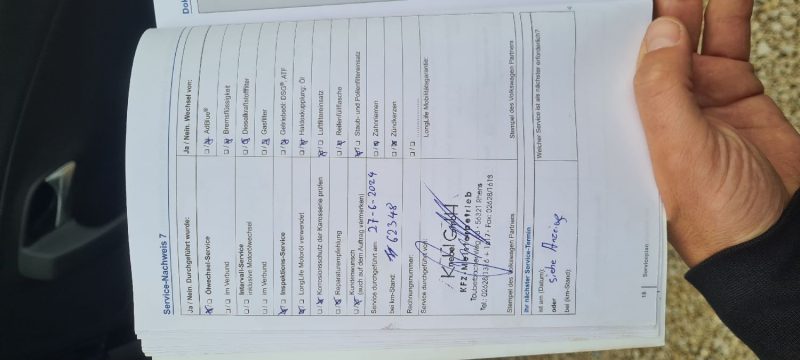 Service-Nachweis 7
Ja / Nein. Durchgeführt wurde:
Ölwechsel-Service
im Verbund
Intervall-Service
inklusive Motorölwechsel
im Verbund
Inspektions-Service
LongLife Motoröl verwendet
Korrosionsschutz der Karosserie prüfen
Reparaturempfehlung
Kundenwunsch
(auch auf dem Auftrag vermerken)
Service durchgeführt am: 27-6-2024
bei km-Stand: 62348
Rechnungsnummer:
Service durchgeführt von:
GmbH
KFZ-Meisterbetrieb
56321 Rhens
Stempel des Volkswagen Partners
Ja / Nein. Wechsel von:
AdBlue®
Bremsflüssigkeit
Dieselkraftstofffilter
Gasfilter
Getriebeöl: DSG®, ATF
Haldexkupplung: Öl
Luftfiltereinsatz
Reifenfüllflasche
Staub- und Pollenfiltereinsatz
Zahnriemen
Zündkerzen
LongLife Mobilitätsgarantie:
Stempel des Volkswagen Partners
Ihr nächster Service-Termin
ist am (Datum):
oder Siehe Anzeige
bei (km-Stand):
Welcher Service ist als nächster erforderlich?
18
Serviceplan